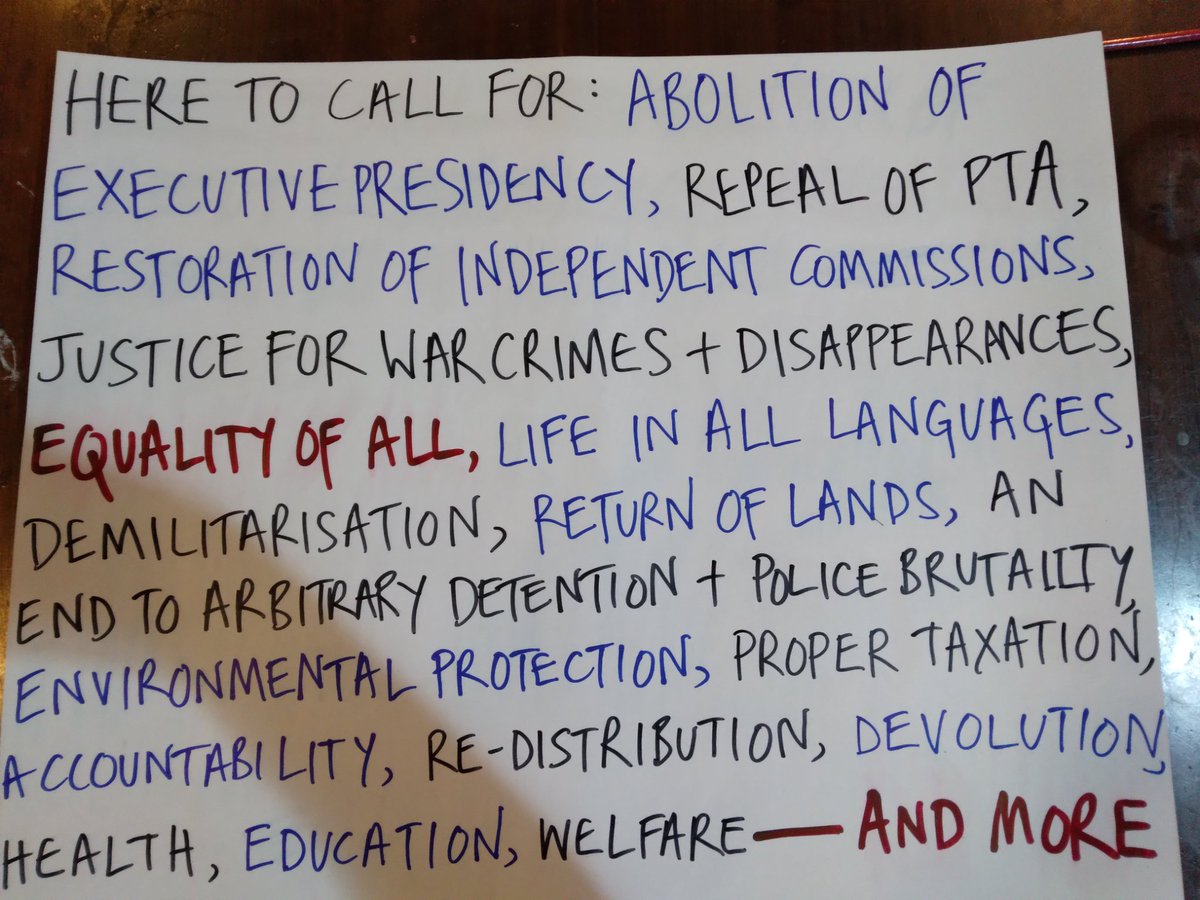 HERE TO CALL FOR: ABOLITION OF
EXECUTIVE PRESIDENCY, REPEAL OF PTA,
RESTORATION OF INDEPENDENT COMMISSIONS,
JUSTICE FOR WAR CRIMES + DISAPPEARANCES,
EQUALITY OF ALL, LIFE IN ALL LANGUAGES,
DEMILITARISATION, RETURN OF LANDS, AN
END TO ARBITRARY DETENTION + POLICE BRUTALITY,
ENVIRONMENTAL PROTECTION, PROPER TAXATION,
ACCOUNTABILITY, RE-DISTRIBUTION, DEVOLUTION,
HEALTH, EDUCATION, WELFARE — AND MORE